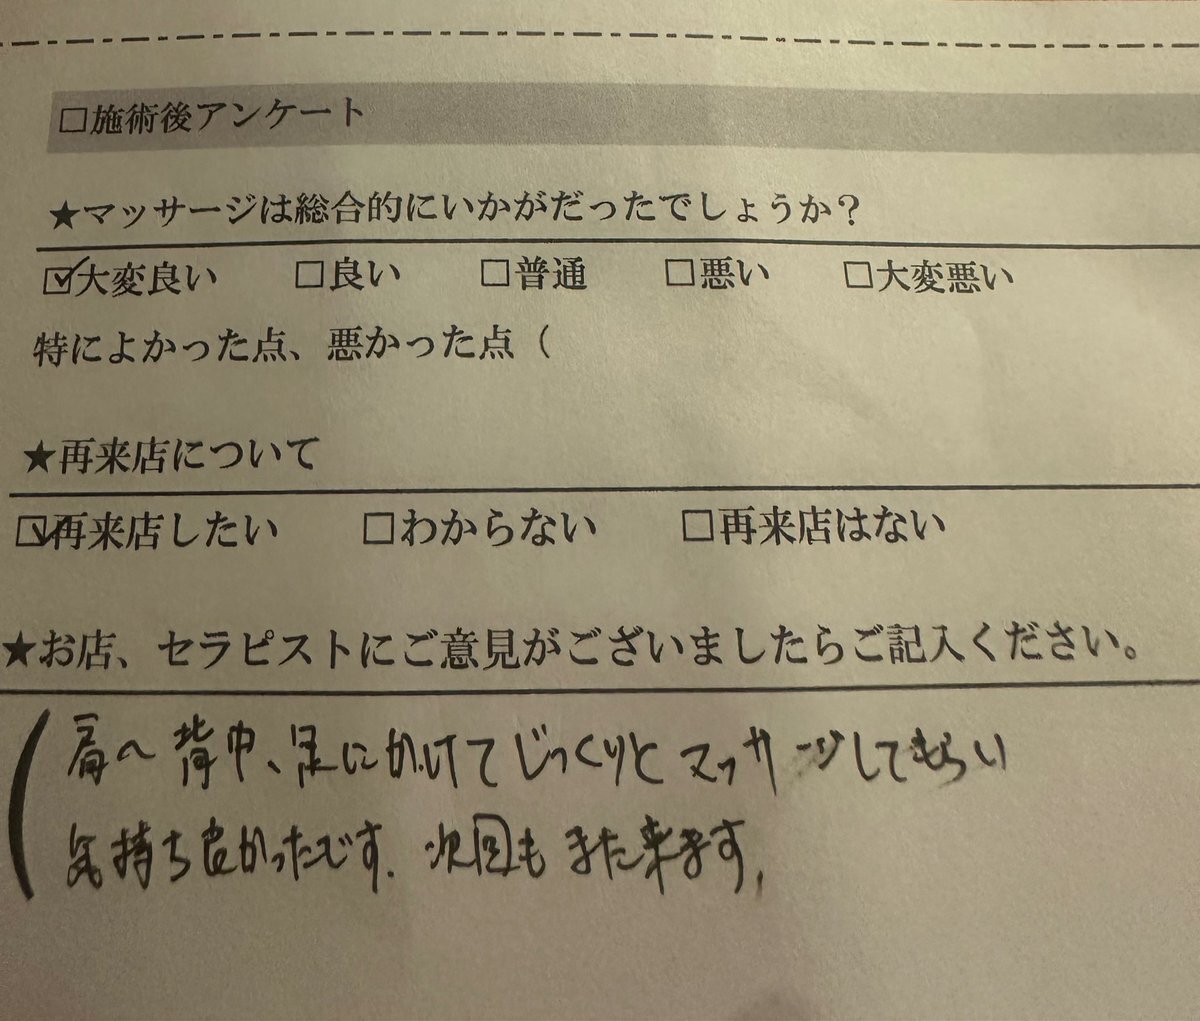 □施術後アンケート
★マッサージは総合的にいかがだったでしょうか？
☑大変良い □良い □普通 □悪い □大変悪い
特によかった点、悪かった点（
★再来店について
☑再来店したい □わからない □再来店はない
★お店、セラピストにご意見がございましたらご記入ください。
（肩〜背中、足にかけてじっくりとマッサージしてもらい
気持ち良かったです。次回もまた来ます。